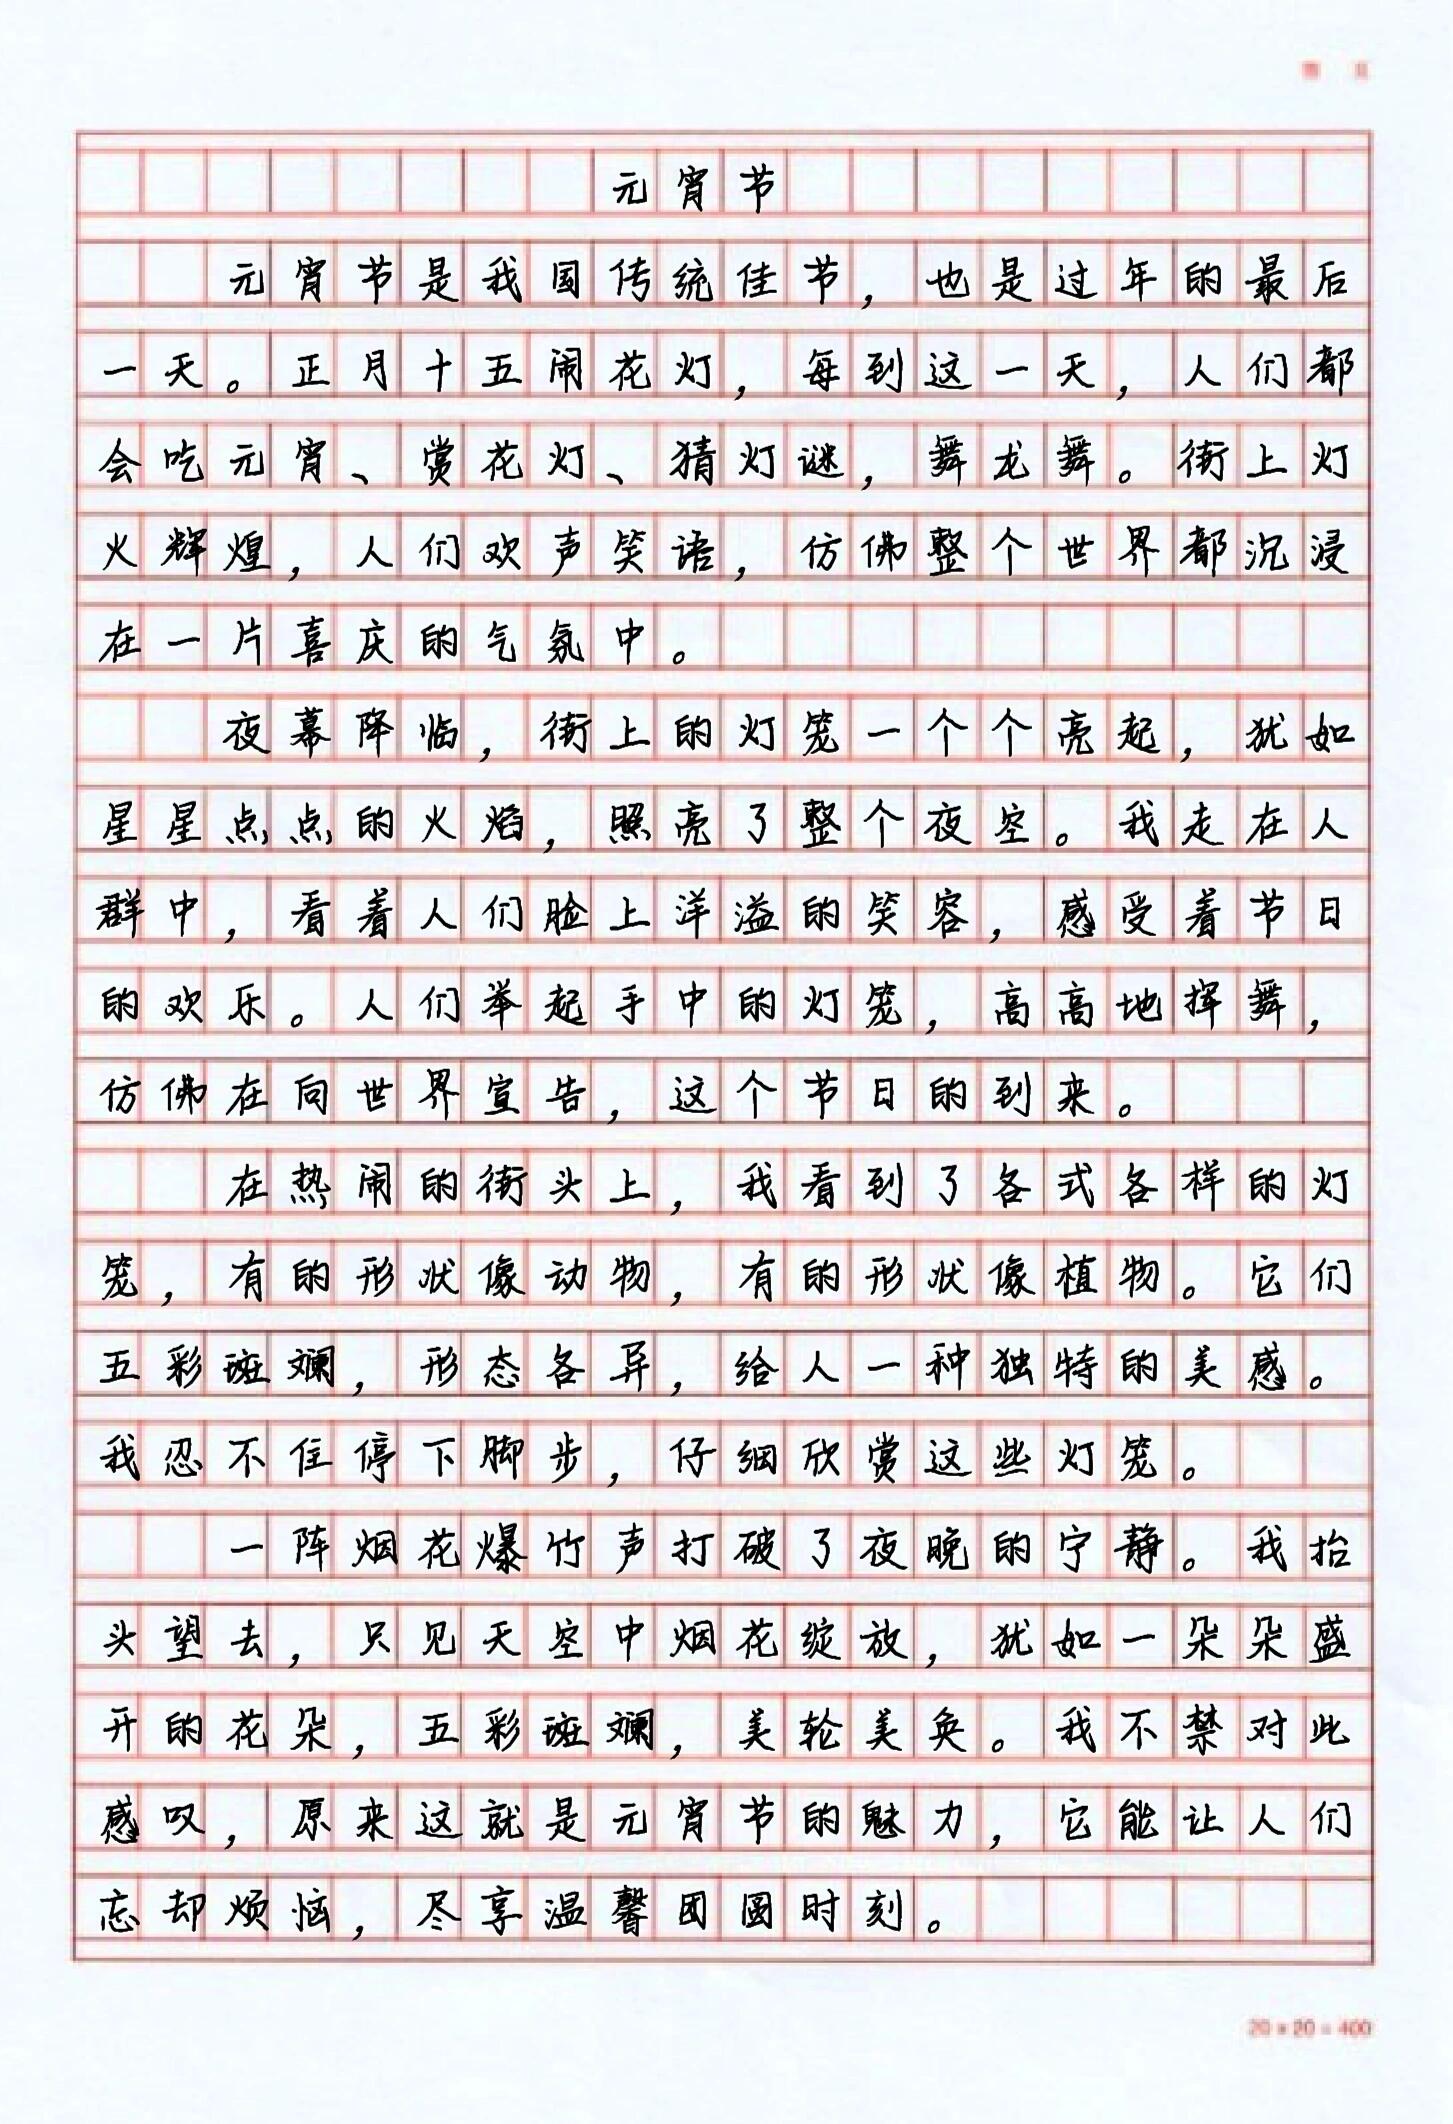 元宵节
元宵节是我国传统佳节，也是过年的最后
一天。正月十五闹花灯，每到这一天，人们都
会吃元宵、赏花灯、猜灯谜，舞龙舞。街上灯
火辉煌，人们欢声笑语，仿佛整个世界都沉浸
在一片喜庆的气氛中。
夜幕降临，街上的灯笼一个个亮起，犹如
星星点点的火焰，照亮了整个夜空。我走在人
群中，看着人们脸上洋溢的笑容，感受着节日
的欢乐。人们举起手中的灯笼，高高地挥舞，
仿佛在向世界宣告，这个节日的到来。
在热闹的街头上，我看到了各式各样的灯
笼，有的形状像动物，有的形状像植物。它们
五彩斑斓，形态各异，给人一种独特的美感。
我忍不住停下脚步，仔细欣赏这些灯笼。
一阵烟花爆竹声打破了夜晚的宁静。我抬
头望去，只见天空中烟花绽放，犹如一朵朵盛
开的花朵，五彩斑斓，美轮美奂。我不禁对此
感叹，原来这就是元宵节的魅力，它能让人们
忘却烦恼，尽享温馨团圆时刻。
20×20=400